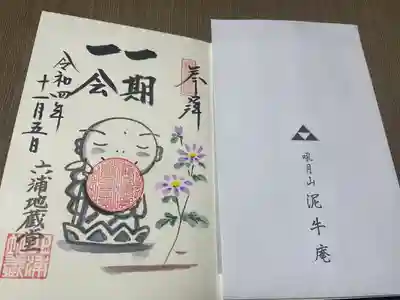 吼月山 泥牛庵
奉拝
一期
一会
令和四年
十一月五日
六浦地蔵堂